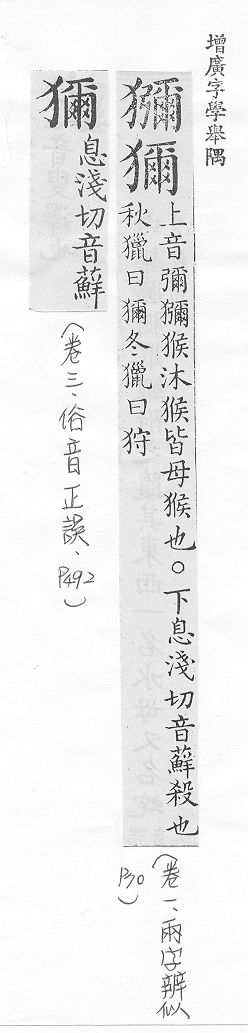 增廣字學舉隅
獼獮
上音彌獼猴沐猴皆母猴也。下息淺切音蘚殺也
秋獵曰獮冬獵曰狩
(卷一、兩字辨似
P30)
獮
息淺切音蘚
(卷三、俗音正誤、P492)